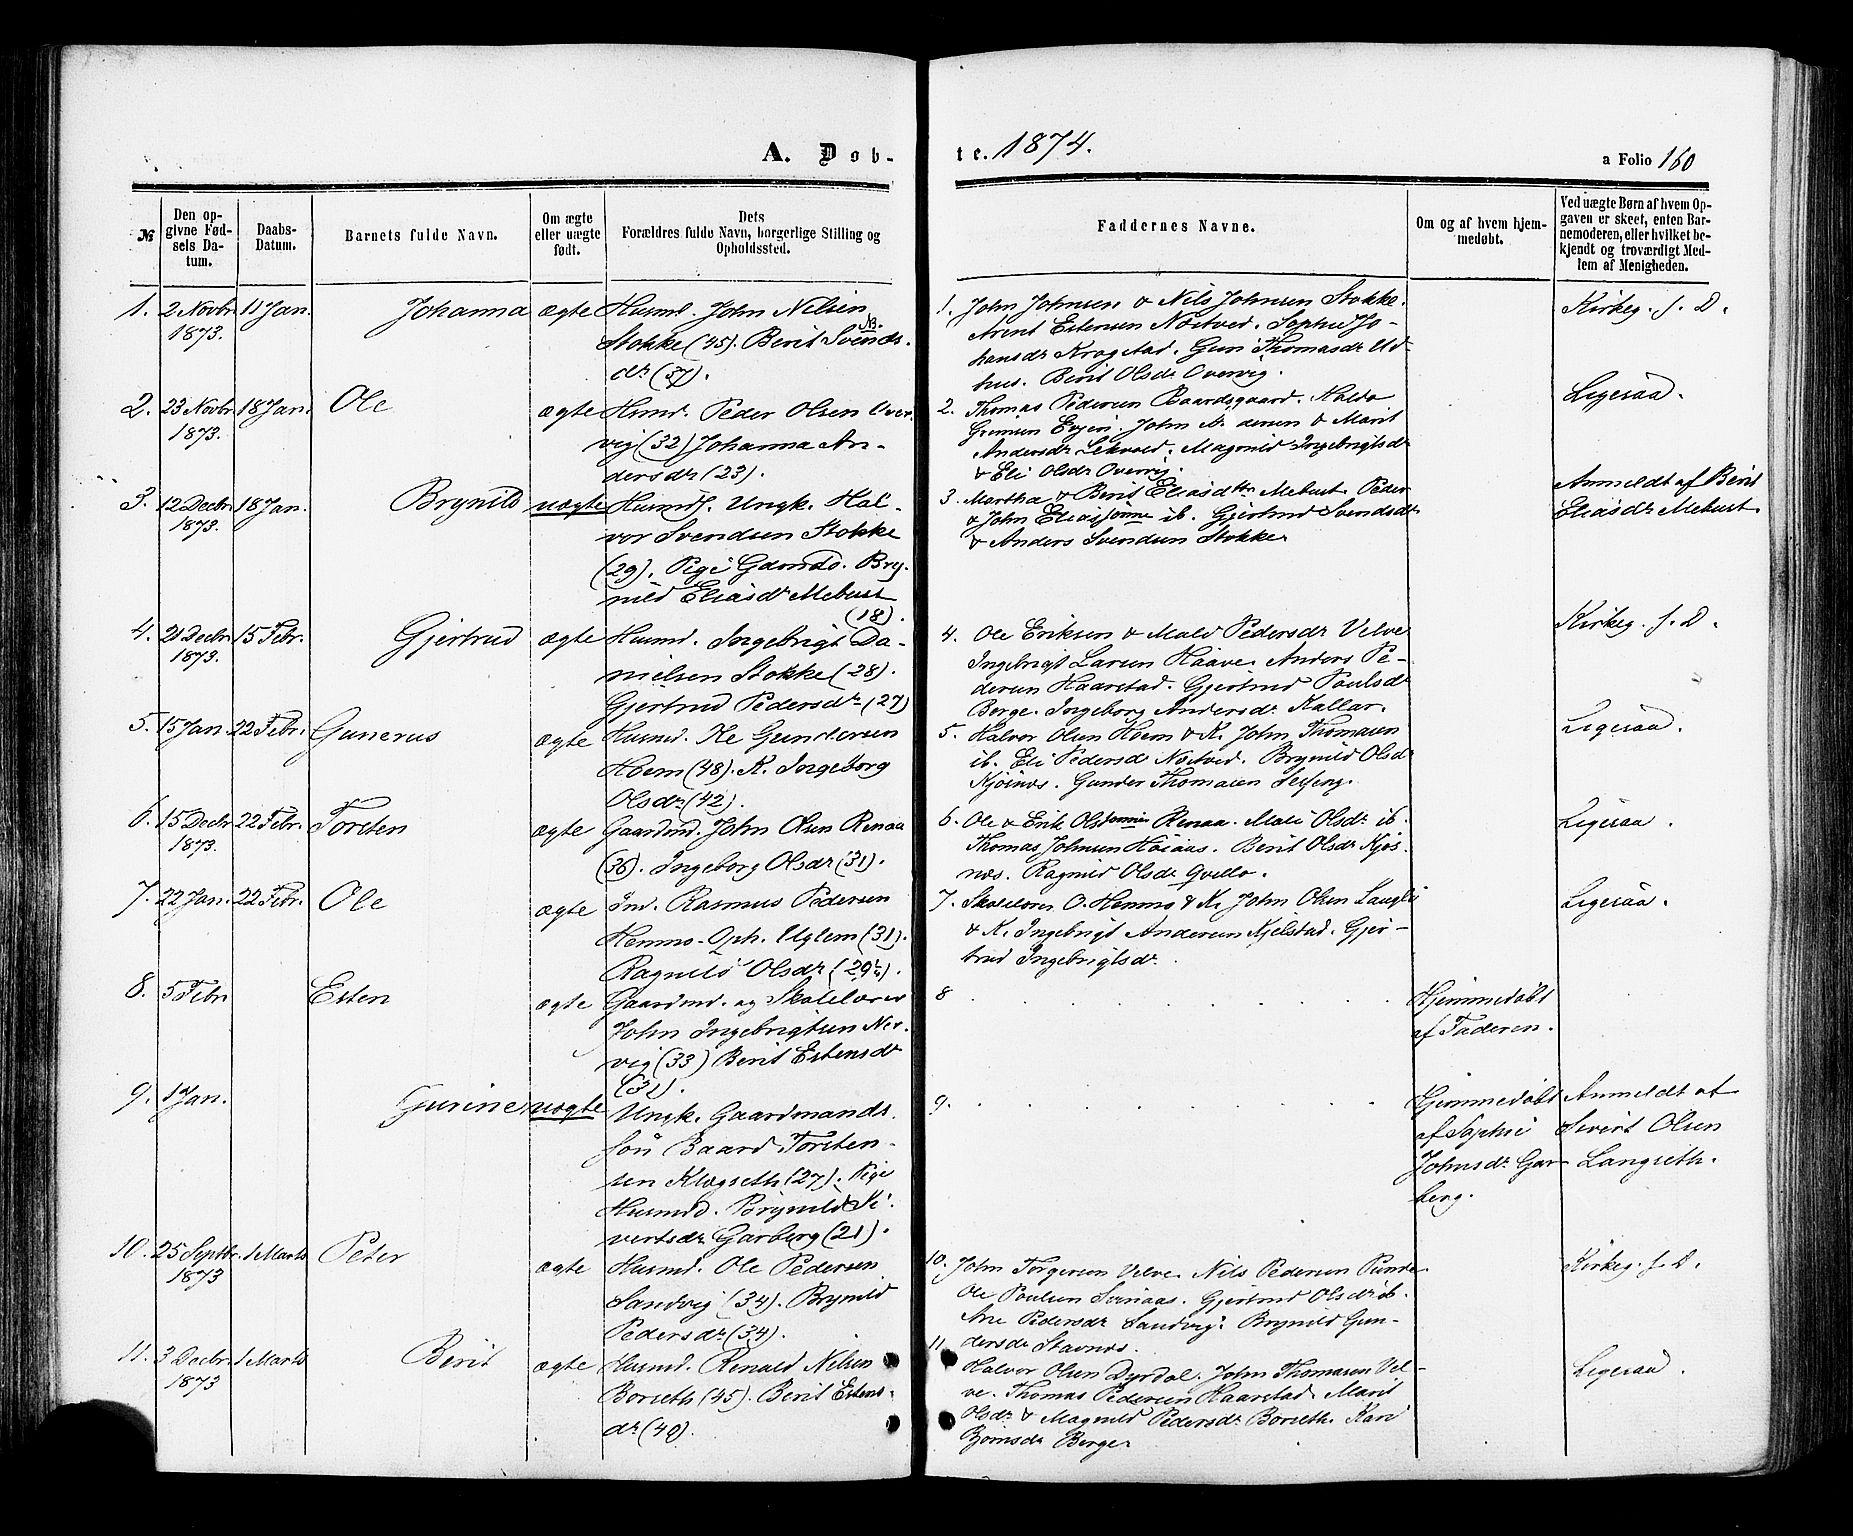 A. Døb-
te. 1874.
a Folio 160
№
Den op-
givne Fød-
sels Da-
tum.
Daabs-
Datum.
Barnets fulde Navn.
Om ægte
eller uægte
født.
Dets
Forældres fulde Navn, borgerlige Stilling og
Opholdssted.
Faddernes Navne.
Om og af hvem hjem-
medøbt.
Ved uægte Børn af hvem Op-
gaven er skeet, enten Bar-
nemoderen, eller hvilket be-
kjendt og troværdigt Med-
lem af Menigheden.
1. 2 Novbr 11 Jan. Johanna ægte Husmd. John Nilsen
1873. Stokke (45). Berit Svends-
dr (37).
1. John Johnsen & Nils Johnsen Stokke.
Arent Estensen Nøstved. Sophie Jo-
hansdr Kragstad. Guri Thomasdr Ud-
hus. Berit Olsdr Overvig.
Kirkeg. f. D.
2. 23 Novbr 18 Jan. Ole ægte Husmd. Peder Olsen Over-
1873. vig (32) Johanna An-
dersdr (23).
2. Thomas Pedersen Baardsgaard. Haldo
Evjen. John & Marit
Andersdr. Magnild Ingebrigtsdr
& Eli Olsdr Overvig.
Ligesaa.
3. 12 Decbr 18 Jan. Brynild uægte Husmd. Ungk. Hal-
1873. vor Svendsen Stokke
(29). Pige Gdmds. Bry-
nild Eliasdr Mebust
(18).
3. Martha & Berit Eliasdtre Mebust. Peder
& John Eliassønne ib. Gjertrud Svendsdr
& Anders Svendsen Stokke
Anmeldt af Berit
Eliasdr Mebust.
4. 21 Decbr 15 Febr. Gjertrud ægte Husmd. Ingebrigt Da-
1873. nielsen Stokke (28).
Gjertrud Pedersdr (27)
4. Ole Eriksen & Mali Pedersdr Velve
Ingebrigt Larsen Haave. Anders Pe-
dersen Haarstad. Gjertrud Poulsdr
Berge. Ingeborg Andersdr Kallar.
Kirkeg. f. D.
5. 15 Jan. 22 Febr. Gunerus ægte Husmd. Ole Gundersen
Hoem (48). K. Ingeborg
Olsdr (42).
5. Halvor Olsen Hoem & K. John Thomasen
ib. Eli Pedersdr Nøstved. Brynild Olsdr
Kjøsnes. Gunder Thomasen
Ligesaa.
6. 15 Decbr 22 Febr. Torsten ægte Gaardmd. John Olsen Renaa
1873. (36). Ingeborg Olsdr (31).
6. Ole & Erik Olssønne Renaa. Mali Olsdr ib.
Thomas Johnsen Haaas. Berit Olsdr Kjøs-
nes. Ragnild Olsdr Qvello.
Ligesaa.
7. 22 Jan. 22 Febr. Ole ægte Ind. Rasmus Pedersen
Hemmo. Oph. Uglem (31).
Ragnild Olsdr (29¼).
7. Skolelærer O. Hemmo & K. John Olsen Langli
& K. Ingebrigt Andersen Kjelstad. Gjer-
trud Ingebrigtsdr.
Ligesaa.
8. 5 Febr Esten ægte Gaardmd. og Skolelærer
John Ingebrigtsen Ner-
vig (33) Berit Estensdr
(31).
8
Hjemmedøbt
af Faderen.
9. 1 Jan. Gurine uægte Ungk. Gaardmands
søn Baard Torsten-
sen Klegseth (27). Pige
Husmd. Brynild Si-
vertsdr Garberg (21).
9.
Hjemmedøbt
af Sophie
Johnsdr Gar-
berg.
Anmeldt af
Sivert Olsen
Langseth.
10. 25 Septbr. 1 Marts Peter ægte Husmd. Ole Pedersen
1873 Sandvig (34). Brynild
Pedersdr (34).
10. John Torgersen Velve. Nils Pedersen Runde
Ole Poulsen Svinaas. Gjertrud Olsdr ib.
Ane Pedersdr Sandvig. Brynild Gun-
dersdr Stavnes.
Kirkeg. f. D.
11. 3 Decbr 1 Marts Berit ægte Husmd. Renald Nilsen
1873 Borseth (45). Berit Estens-
dr (40).
11. Halvor Olsen Dyrdal. John Thomasen Vel-
ve. Thomas Pedersen Haarstad. Marit
Olsdr & Magnild Pedersdr Borseth. Kari
Bjørnsdr Berge
Ligesaa.